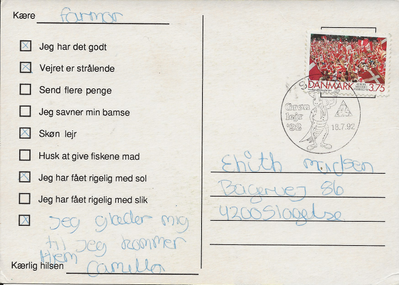 Kære farmor
Jeg har det godt
Vejret er strålende
Send flere penge
Jeg savner min bamse
Skøn lejr
Husk at give fiskene mad
Jeg har fået rigelig med sol
Jeg har fået rigelig med slik
Jeg glæder mig
til jeg kommer
hjem
Kærlig hilsen Camilla
DANMARK
375
lejr
'92
18.7.92
Edith Madsen
Bagervej 86
4200 Slagelse